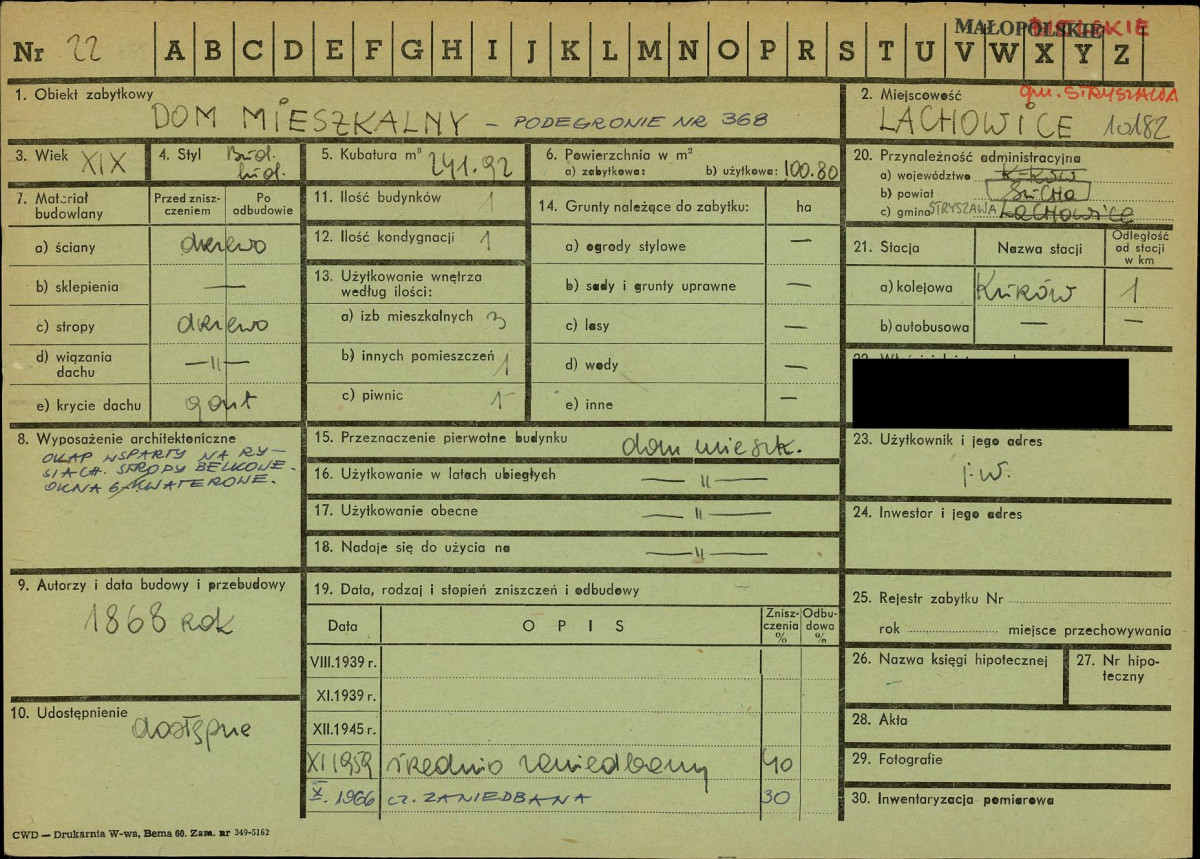 Nr 22 A B C D E F G H I J K L M N O P R S T U V W X Y Z
MAŁOPOLSKIE
1. Obiekt zabytkowy
DOM MIESZKALNY – PODEGRONIE NR 368
2. Miejscowość
gm. STRYSZAWA
LACHOWICE 10182
3. Wiek XIX
4. Styl Bud. lud.
5. Kubatura m³ 241.92
6. Powierzchnia w m²
a) zabytkowa: b) użytkowa: 100.80
20. Przynależność administracyjna
a) województwo
b) powiat SUCHA
c) gmina STRYSZAWA LACHOWICE
7. Materiał budowlany
Przed zniszczeniem
Po odbudowie
a) ściany drzewo
b) sklepienia —
c) stropy drzewo
d) wiązania dachu —"—
e) krycie dachu gont
11. Ilość budynków 1
12. Ilość kondygnacji 1
13. Użytkowanie wnętrza według ilości:
a) izb mieszkalnych 3
b) innych pomieszczeń 1
c) piwnic 1
14. Grunty należące do zabytku: ha
a) ogrody stylowe —
b) sady i grunty uprawne —
c) lasy —
d) wody —
e) inne —
21. Stacja
Nazwa stacji
Odległość od stacji w km
a) kolejowa Kuków 1
b) autobusowa — —
8. Wyposażenie architektoniczne
OKAP WSPARTY NA RY-
SIACH. STROPY BELKOWE.
OKNA 6-KWATEROWE.
15. Przeznaczenie pierwotne budynku dom mieszk.
16. Użytkowanie w latach ubiegłych —"—
17. Użytkowanie obecne —"—
18. Nadaje się do użycia na —"—
23. Użytkownik i jego adres
j.w.
24. Inwestor i jego adres
9. Autorzy i data budowy i przebudowy
1868 rok
10. Udostępnienie
dostępne
19. Data, rodzaj i stopień zniszczeń i odbudowy
Data
OPIS
Zniszczenia %
Odbudowa %
VIII.1939 r.
XI.1939 r.
XII.1945 r.
XI 1959 średnio zaniedbany 40
X. 1966 cz. ZANIEDBANA 30
25. Rejestr zabytku Nr
rok miejsce przechowywania
26. Nazwa księgi hipotecznej
27. Nr hipoteczny
28. Akta
29. Fotografie
30. Inwentaryzacja pomiarowa
CWD — Drukarnia W-wa, Bema 60. Zam. nr 349-5162